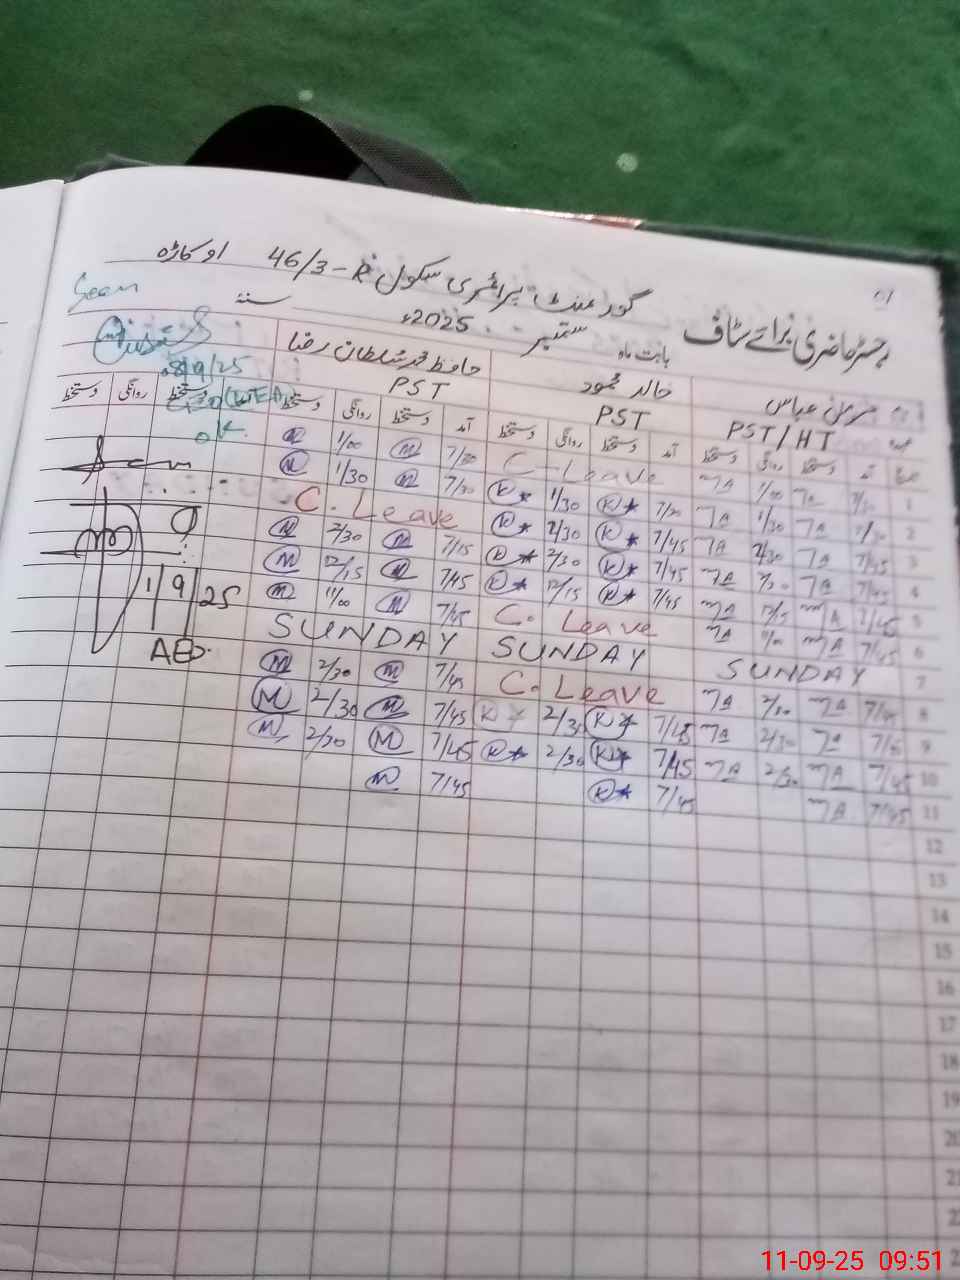 01
Seen
گورنمنٹ پرائمری سکول 46/3-R اوکاڑہ
رجسٹر حاضری برائے سٹاف
بابت ماہ ستمبر 2025ء سنہ
8/9/25
عباس خالد محمود حافظ محمد سلطان رضا
PST/HT PST PST
آمد دستخط روانگی دستخط آمد دستخط روانگی دستخط آمد دستخط روانگی دستخط دستخط روانگی دستخط
1 7/30 1/00 C-Leave 7/30 M 1/00 M
2 7/30 1/30 7/30 K* 1/30 K* 7/30 M 1/30 M
3 7/45 2/30 7/45 K* 2/30 K* C. Leave
4 7/45 7/45 K* 2/30 K* 7/15 M 2/30 M
5 7/45 12/15 7/45 K* 12/15 K* 7/45 M 12/15 M
6 7/45 11/00 C. Leave 7/45 M 11/00 M
7 SUNDAY SUNDAY SUNDAY
8 7/45 2/30 C. Leave 7/45 M 2/30 M
9 7/45 2/30 7/45 K* 2/30 K* 7/45 M 2/30 M
10 7/45 2/30 7/45 K* 2/30 K* 7/45 M 2/30 M
11 7/45 7/45 K* 7/45 M
ok
Seen
1/9/25
AEO.
12
13
14
15
16
17
18
19
20
21
22
11-09-25 09:51